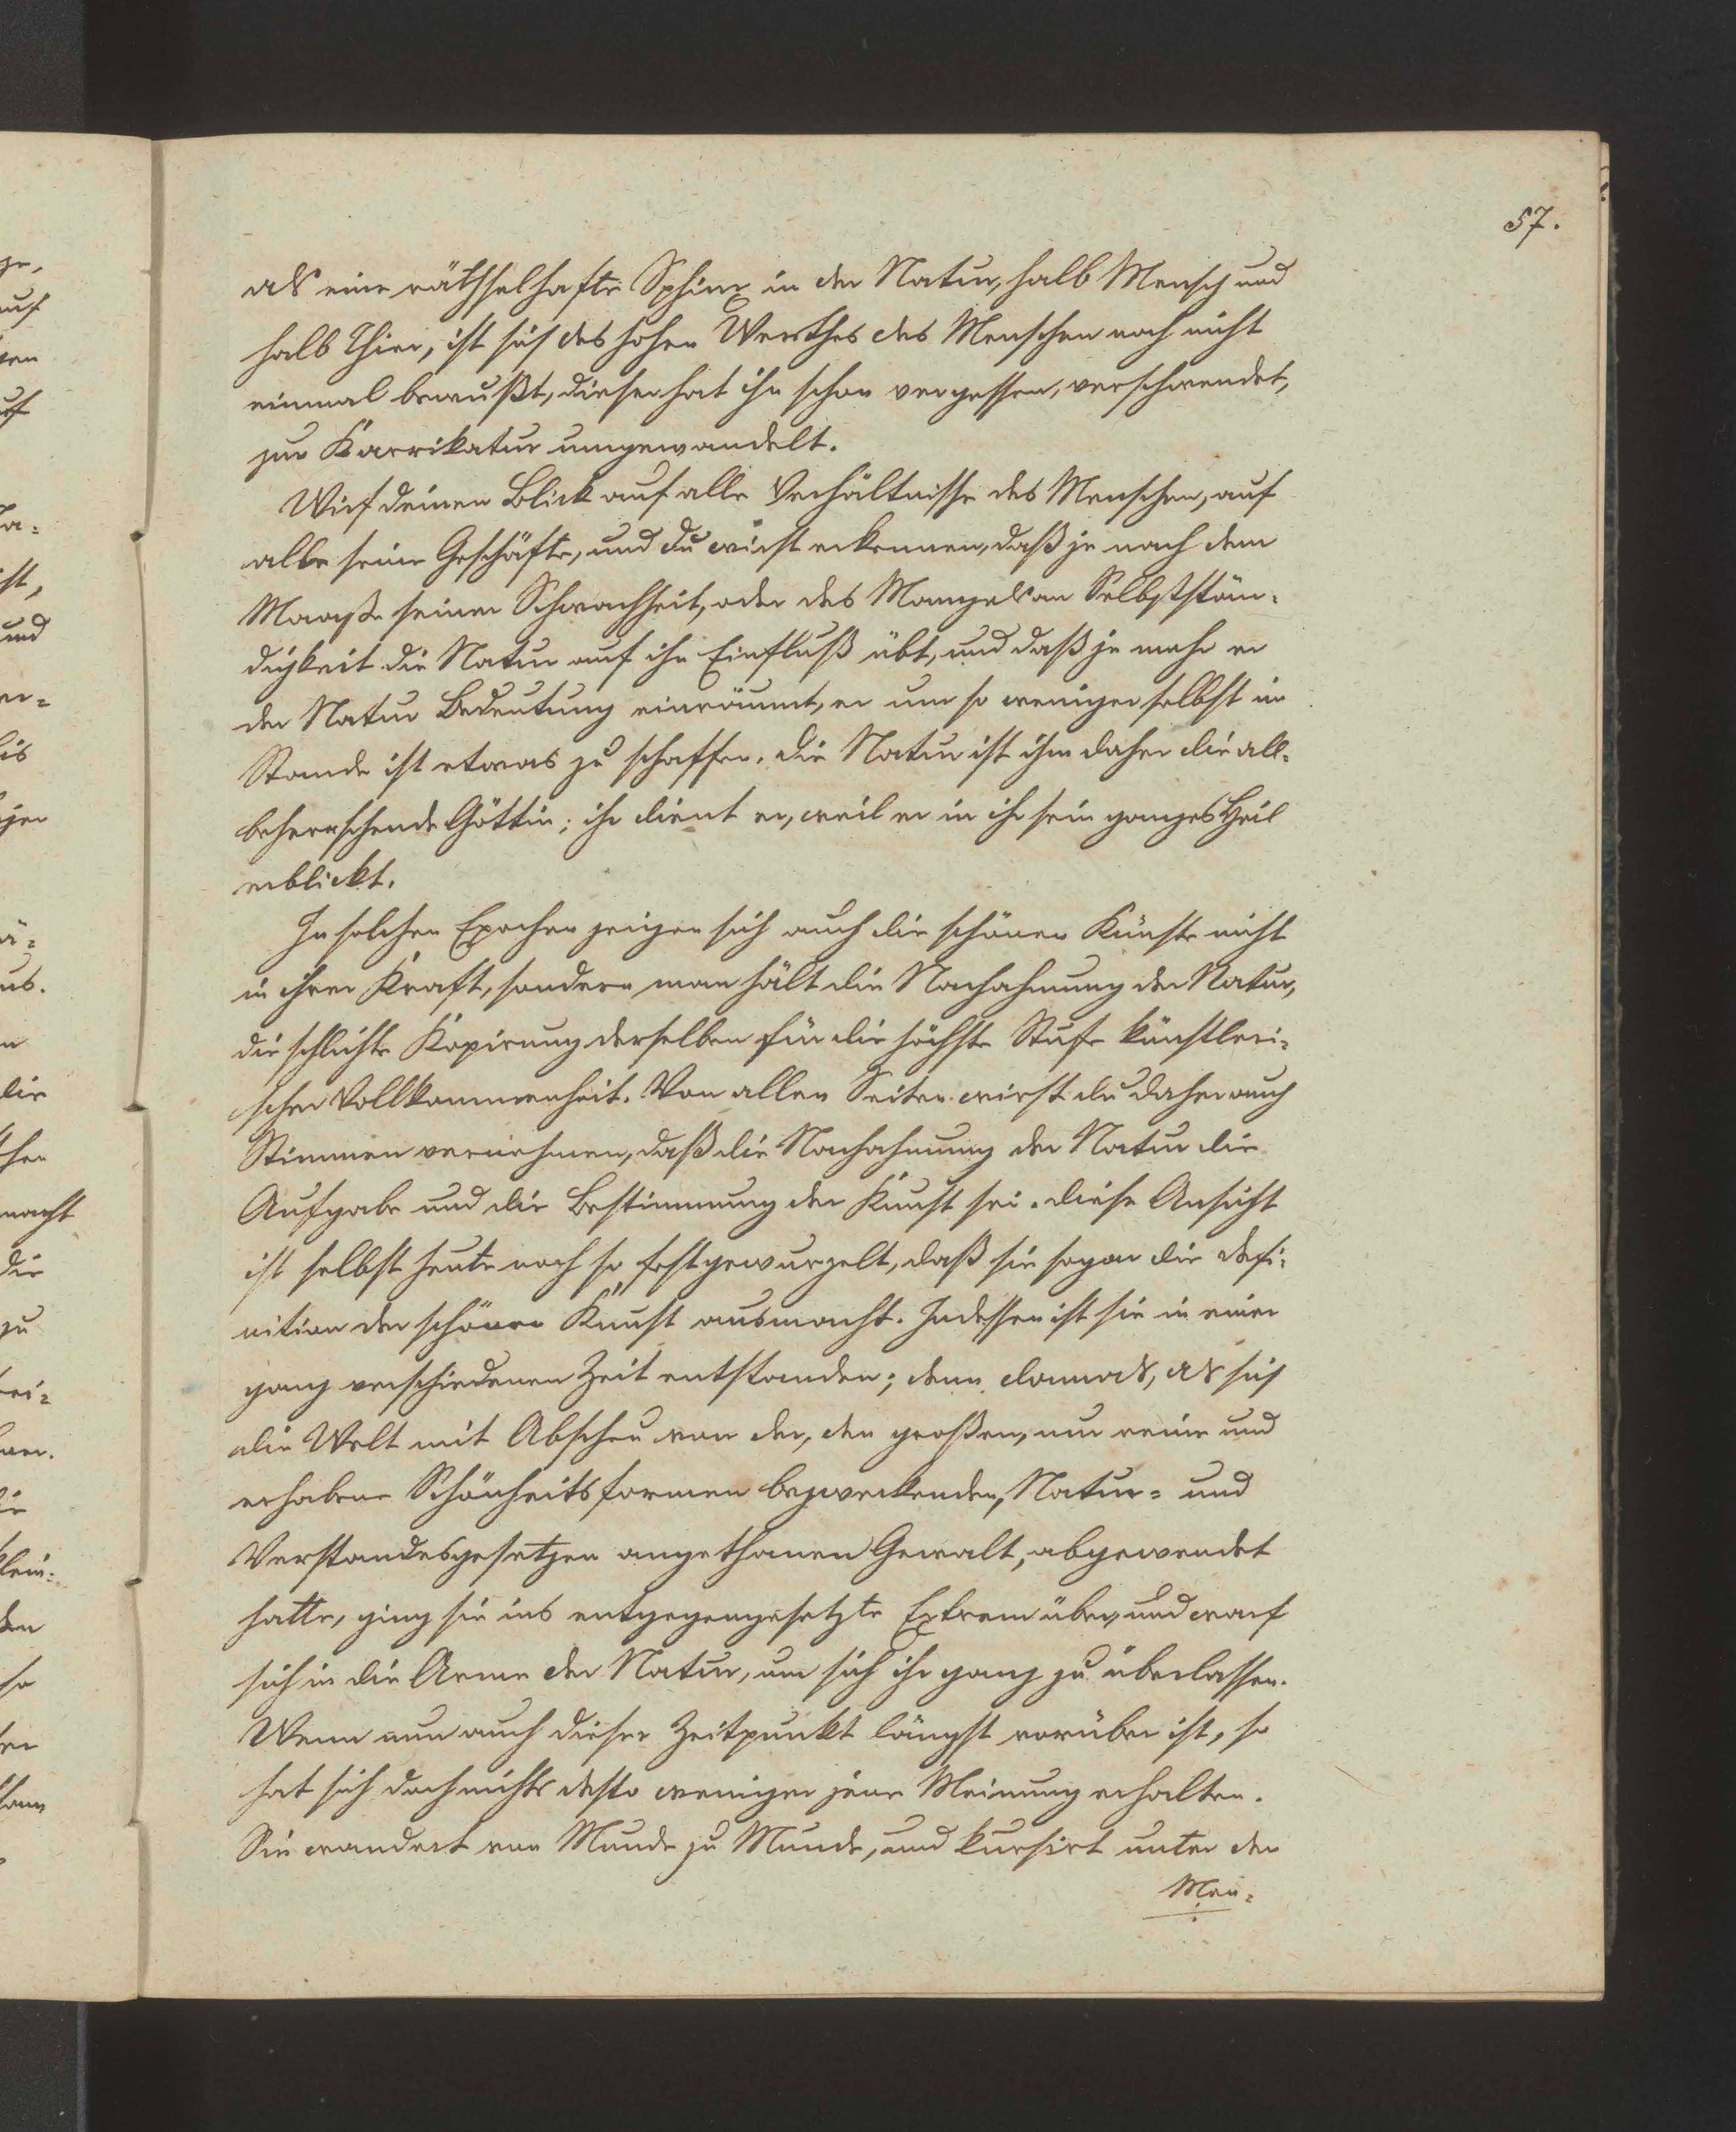 57.
als eine räthselhafte Sphinx in der Natur, halb Mensch und
halb Thier, ist sich des hohen Werthes des Menschen noch nicht
einmal bewußt, dieser hat ihn schon vergessen, verschwendet,
zur Karrikatur umgewandelt.
Wirf deinen Blick auf alle Verhältnisse des Menschen, auf
alle seine Geschäfte, und du wirst erkennen, daß je nach dem
Maaße seiner Schwachheit, oder des Mangels an Selbstän-
digkeit die Natur auf ihn Einfluß übt, und daß je mehr er
der Natur Bedeutung einräumt, er um so weniger selbst im
Stande ist etwas zu schaffen. Die Natur ist ihm daher die all-
beherrschende Göttin; ihr dient er, weil er in ihr sein ganzes Heil
erblickt.
In solchen Epochen zeigen sich auch die schönen Künste nicht
in ihrer Kraft, sondern man hält die Nachahmung der Natur,
die schlichte Kopirung derselben für die höchste Stufe künstleri-
scher Vollkommenheit. Von allen Seiten wirst du daher auch
Stimmen vernehmen, daß die Nachahmung der Natur die
Aufgabe und die Bestimmung der Kunst sei. Diese Ansicht
ist selbst heute noch so festgewurzelt, daß sie sogar die Defi-
nition der schönen Kunst ausmacht. Indessen ist sie in einer
ganz verschiedenen Zeit entstanden; denn damals, als sich
die Welt mit Abscheu von der, den großen, nur reine und
erhabene Schönheitsformen bezweckenden, Natur- und
Verstandesgesetzen angethanen Gewalt, abgewendet
hatte, ging sie ins entgegengesetzte Extrem über, und warf
sich in die Arme der Natur, um sich ihr ganz zu überlassen.
Wenn nun auch dieser Zeitpunkt längst vorüber ist, so
hat sich doch nichts desto weniger jene Meinung erhalten.
Sie wandert von Munde zu Munde, und kursirt unter den
Men-